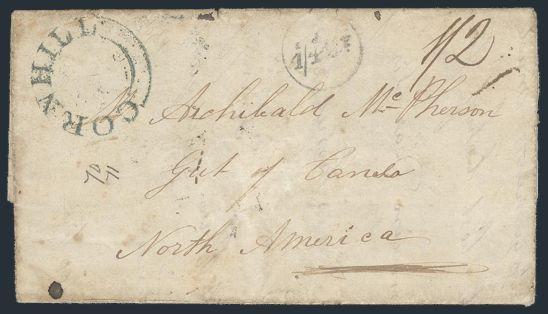 CORNHILL
1/2
Mr Archibald McPherson
Gut of Canso
North America